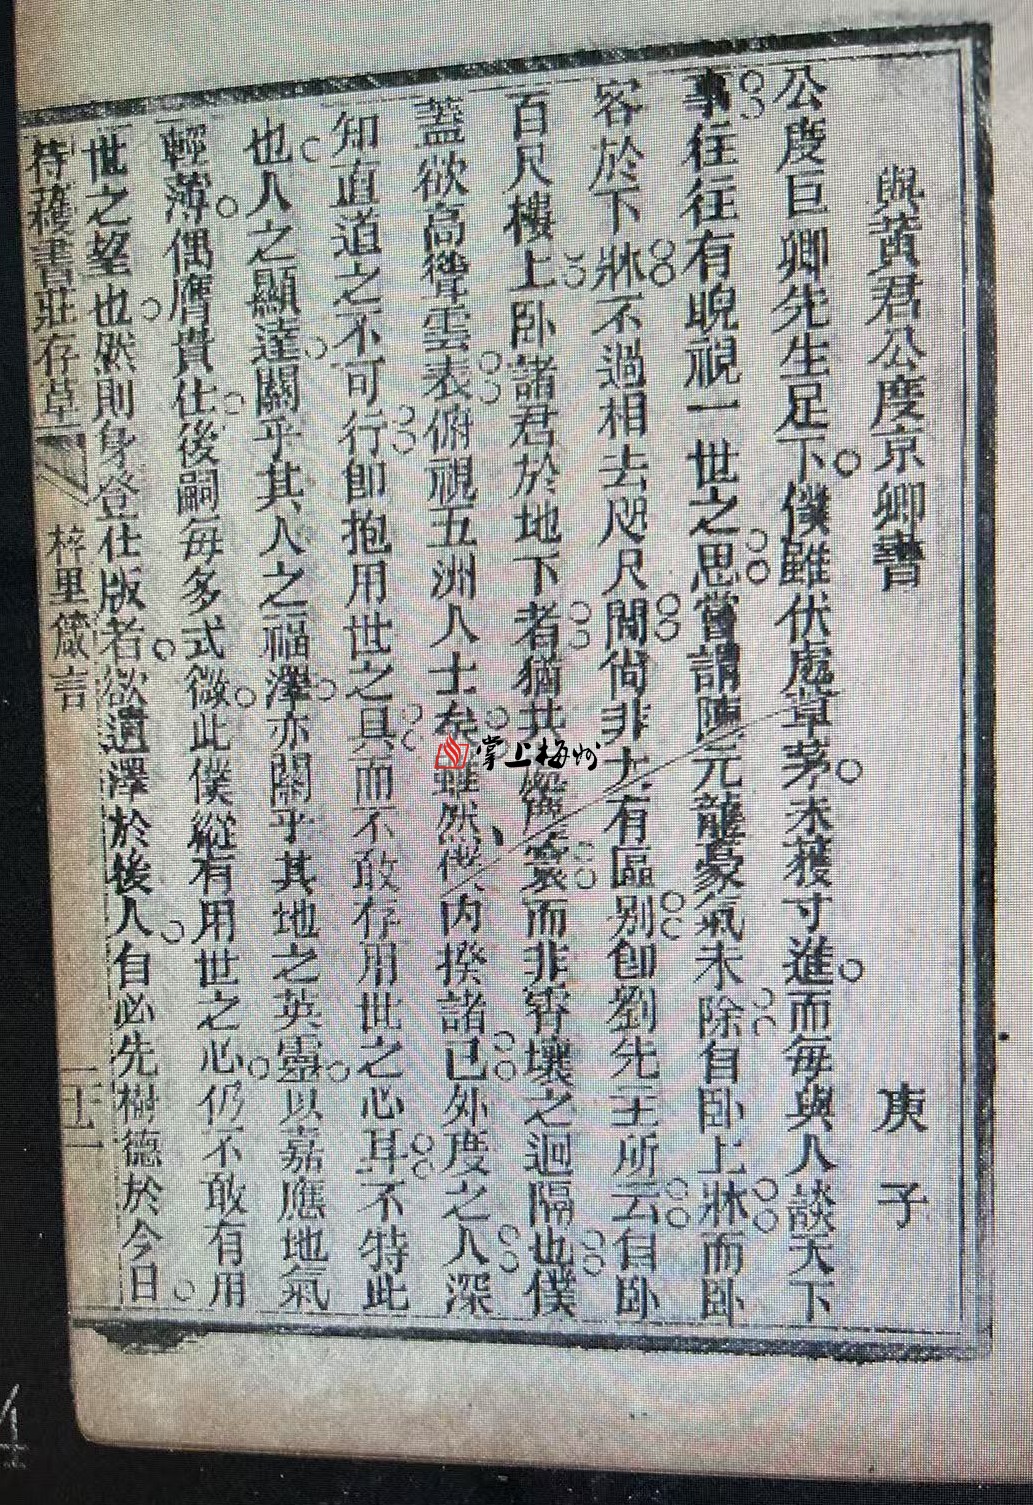 與黃君公度京卿書　庚子
公度巨卿先生足下僕雖伏處草茅未獲寸進而每與人談天下
事往往有睨視一世之思嘗謂陳元龍豪氣未除自卧上牀而卧
客於下牀不過相去咫尺間尙非大有區别卽劉先主所云自卧
百尺樓上卧諸君於地下者猶共而非霄壤之迴隔也僕
蓋欲高聳雲表俯視五洲人士矣雖然僕內揆諸己外度之人深
知直道之不可行卽抱用世之具而不敢存用世之心耳不特此
也人之顯達關乎其人之福澤亦關乎其地之英靈以嘉應地氣
輕薄偶膺貴仕後嗣每多式微此僕縱有用世之心仍不敢有用
世之望也然則身登仕版者欲遺澤於後人自必先樹德於今日
待蓷書莊存草　梓里箴言
掌上梅州
4